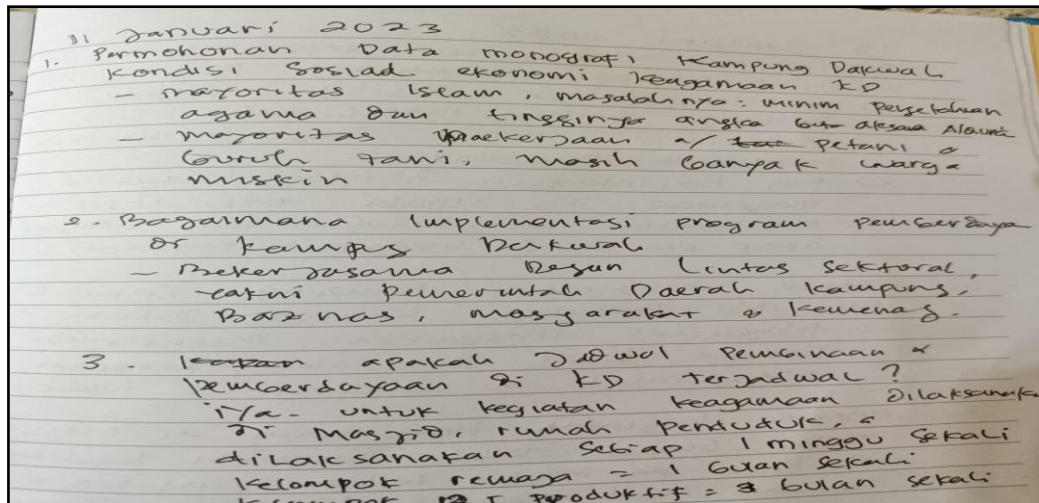 31 Januari 2023
1. Permohonan Data monografi Kampung Dakwah
Kondisi Sosial ekonomi keagamaan KD
- mayoritas Islam, masalahnya: minim pengetahuan
agama dan tingginya angka buta aksara Alquran
- Mayoritas pekerjaan petani &
buruh tani, masih banyak warga
miskin
2. Bagaimana Implementasi program pemberdaya
di Kampung Dakwah
- Bekerjasama dengan lintas sektoral,
yakni pemerintah Daerah Kampung,
Baznas, masyarakat & Kemenag.
3. apakah Jadwal Pembinaan &
Pemberdayaan di KD terjadwal?
iya - untuk kegiatan keagamaan dilaksanakan
di Masjid, rumah penduduk, &
dilaksanakan setiap 1 minggu sekali
Kelompok remaja = 1 bulan sekali
Produktif = 3 bulan sekali